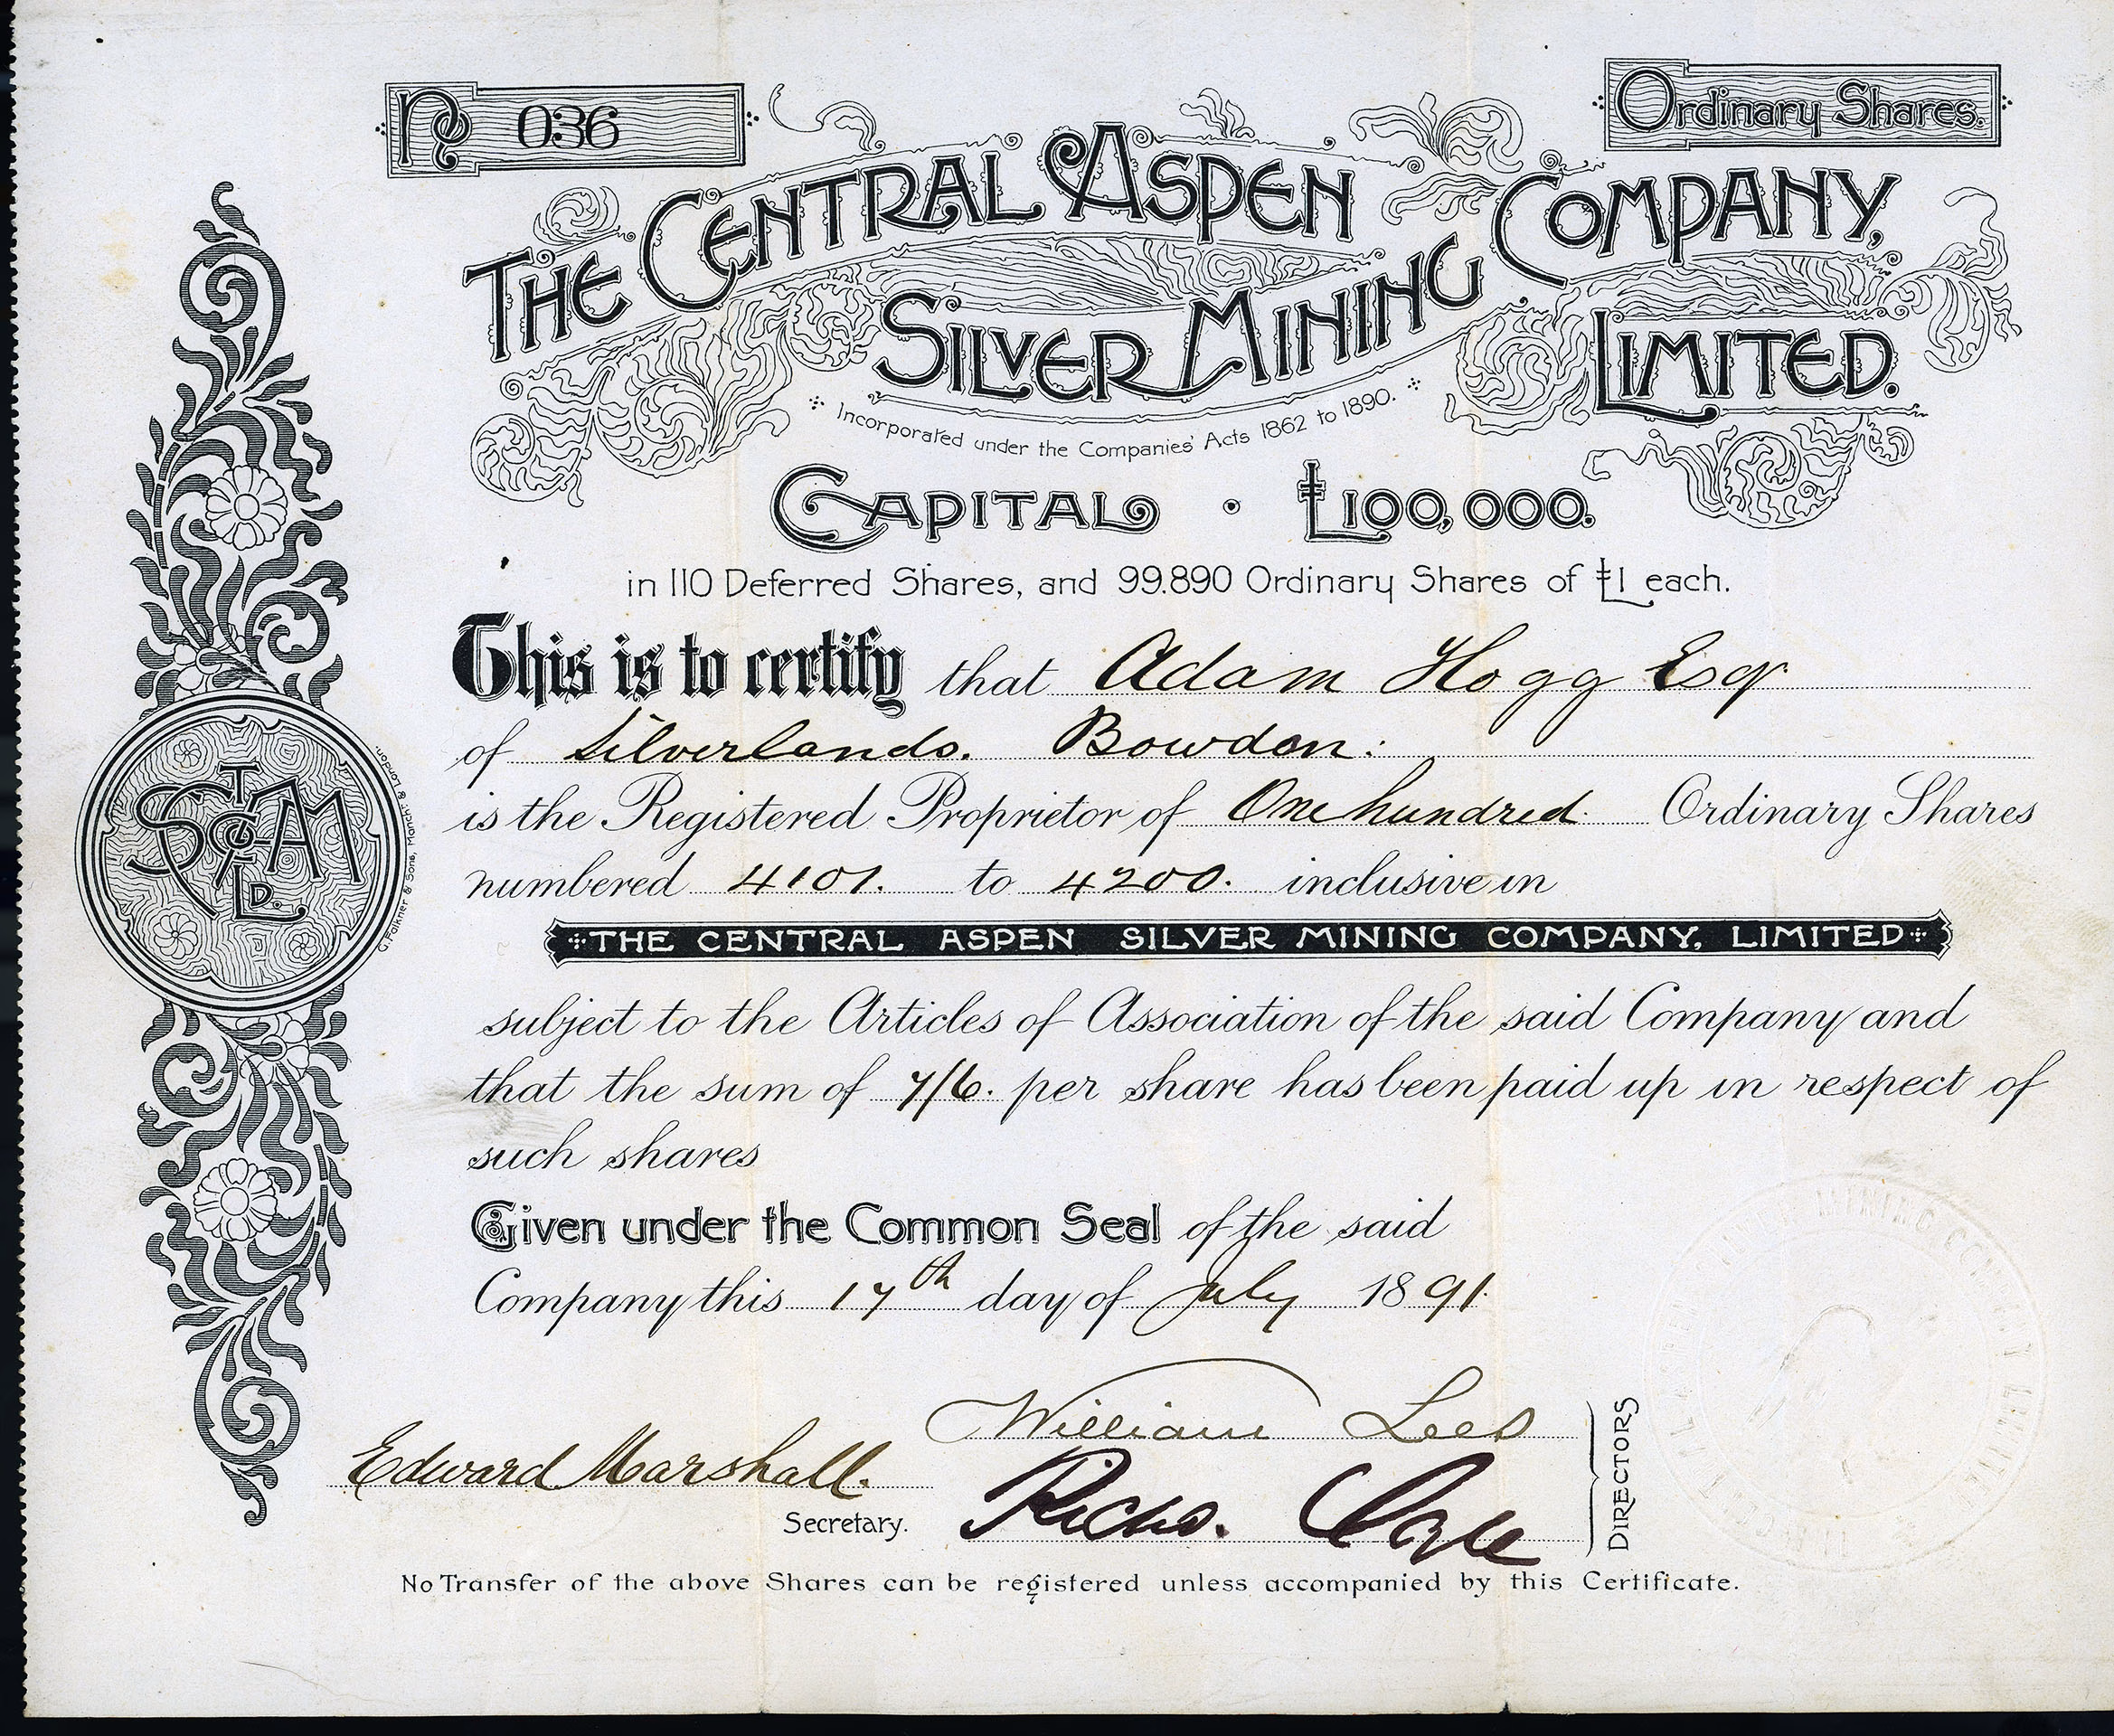 No 036
Ordinary Shares.
THE CENTRAL ASPEN
SILVER MINING COMPANY,
LIMITED.
Incorporated under the Companies' Acts 1862 to 1890.
CAPITAL · £100,000.
in 110 Deferred Shares, and 99.890 Ordinary Shares of £1 each.
This is to certify that Adam Hogg Esqr
of Silverlands. Bowdon:
is the Registered Proprietor of One hundred Ordinary Shares
numbered 4101. to 4200. inclusive in
THE CENTRAL ASPEN SILVER MINING COMPANY, LIMITED
subject to the Articles of Association of the said Company and
that the sum of 7/6. per share has been paid up in respect of
such shares
Given under the Common Seal of the said
Company this 17th day of July 1891.
William Lees
Edward Marshall.
Secretary.
Richd.
DIRECTORS
No Transfer of the above Shares can be registered unless accompanied by this Certificate.
G. Falkner & Sons, Manchr. & London.
LD.
MINING COMPANY LIMITED